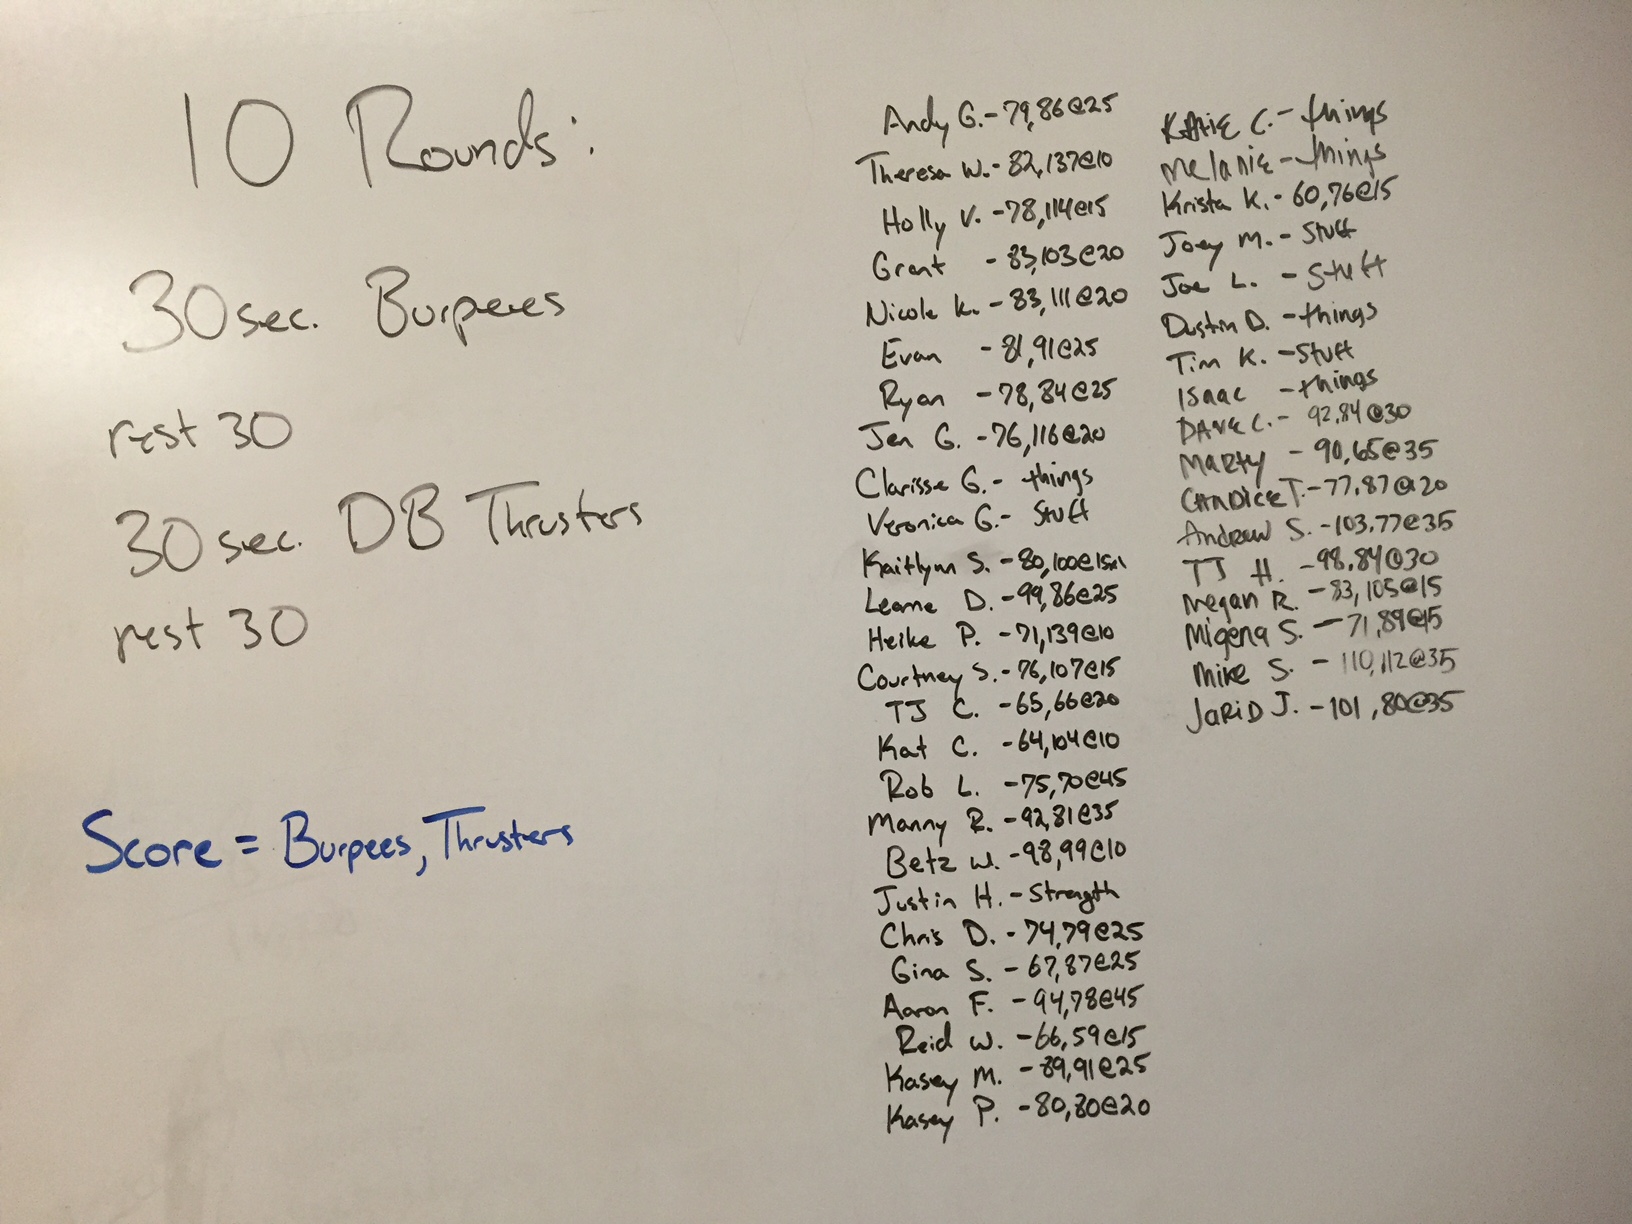 10 Rounds:
30 sec. Burpees
rest 30
30 sec. DB Thrusters
rest 30
Score = Burpees, Thrusters
Andy G. - 79,86@25
Theresa W. - 82,137@10
Holly V. - 78,114@15
Grant - 83,103@20
Nicole K. - 83,111@20
Evan - 81,91@25
Ryan - 78,84@25
Jen G. - 76,116@20
Clarisse G. - things
Veronica G. - Stuff
Kaitlynn S. - 80,100@15
Leanne D. - 99,86@25
Heike P. - 71,139@10
Courtney S. - 76,107@15
TJ C. - 65,66@20
Kat C. - 64,104@10
Rob L. - 75,70@45
Manny R. - 92,81@35
Betz W. - 98,99@10
Justin H. - Strength
Chris D. - 74,79@25
Gina S. - 67,87@25
Aaron F. - 94,78@45
Reid W. - 66,59@15
Kasey M. - 89,91@25
Kasey P. - 80,80@20
Katie C. - things
Melanie - things
Krista K. - 60,76@15
Joey M. - Stuff
Joe L. - Stuff
Dustin D. - things
Tim K. - Stuff
Isaac - things
Dave C. - 92,84@30
Marty - 90,65@35
Candice T. - 77,87@20
Andrew S. - 103,77@35
TJ H. - 98,84@30
Megan R. - 83,105@15
Migena S. - 71,89@15
Mike S. - 110,112@35
JARID J. - 101,80@35